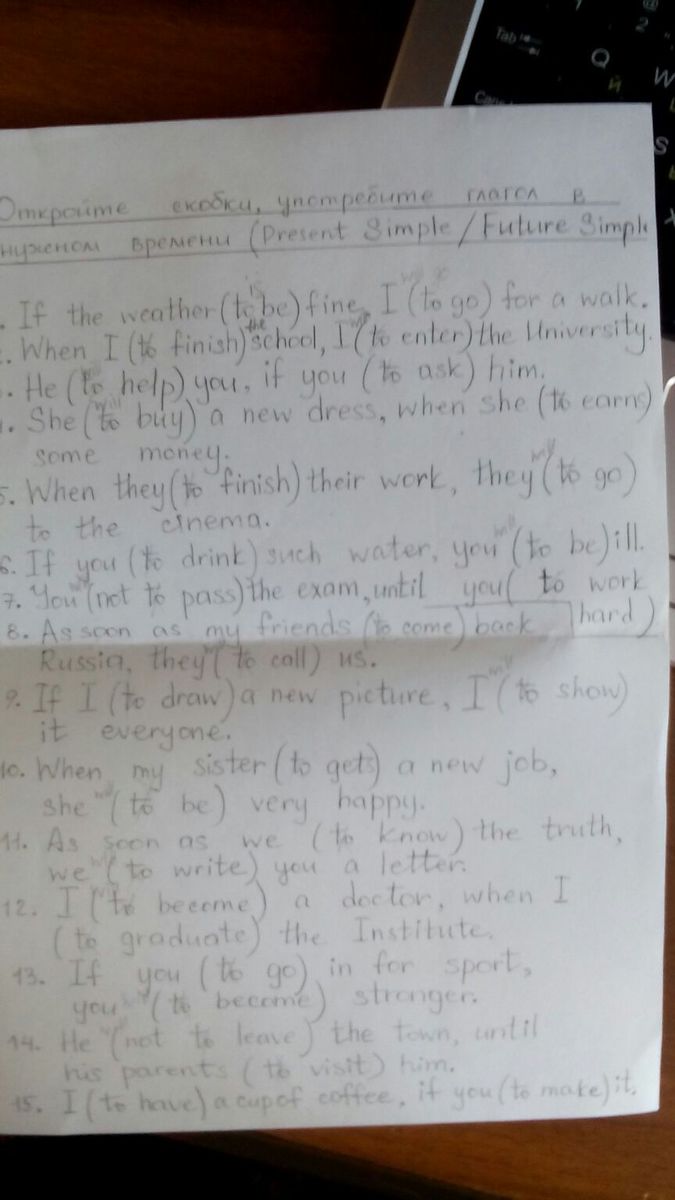 Tab
Q
Й
W
2
@
S
Откройте скобки, употребите глагол в
нуженом времени (Present Simple / Future Simple
is will go
. If the weather (to be) fine, I (to go) for a walk.
the will
. When I (to finish) school, I (to enter) the University.
. He (to help) you, if you (to ask) him.
will
. She (to buy) a new dress, when she (to earns)
some money.
will
5. When they (to finish) their work, they (to go)
to the cinema.
will
6. If you (to drink) such water, you (to be) ill.
7. You (not to pass) the exam, until you ( to work
hard )
8. As soon as my friends (to come) back
Russia, they ( to call) us.
will
9. If I (to draw) a new picture, I (to show)
it everyone.
10. When my sister (to gets) a new job,
she (to be) very happy.
11. As soon as we (to know) the truth,
we (to write) you a letter.
12. I (to become) a doctor, when I
(to graduate) the Institute.
13. If you (to go) in for sport,
you (to become) stronger.
14. He (not to leave) the town, until
his parents (to visit) him.
15. I (to have) a cup of coffee, if you (to make) it.